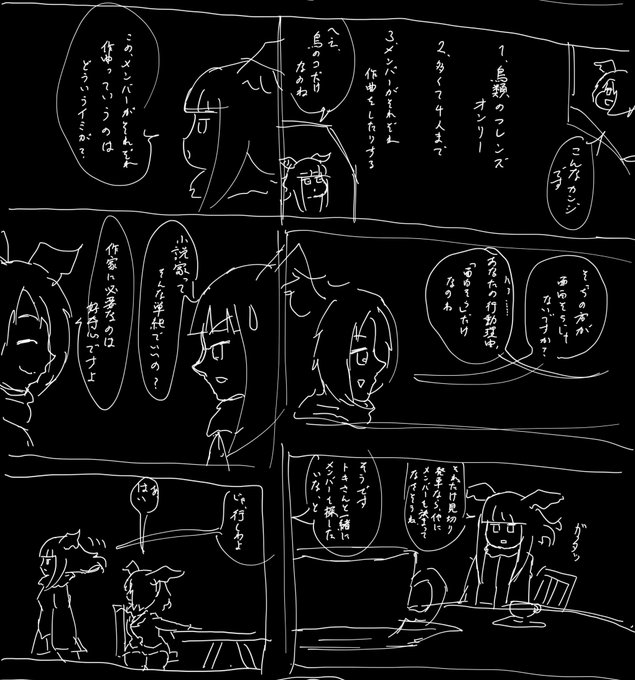 こんなカンジ
です
1、鳥類のフレンズ
オンリー
2、多くて4人まで
3、メンバーがそれぞれ
作曲をしたりする
へえ、
鳥のコだけ
なのね
このメンバーがそれぞれ
作曲っていうのは
どういうイミかしら?
そっちの方が
面白そうじゃ
ないですか?
あなたの行動理由、
「面白そう」だけ
なのね
小説家って
そんな単純でいいの?
作家に必要なのは
好奇心ですよ
ガタッ
それだけ見切り
発車なら、他に
メンバーも決まって
なさそうね
そうです
トキさんと一緒に
メンバーも探した
いな、と
じゃ、行くわよ
はぁ